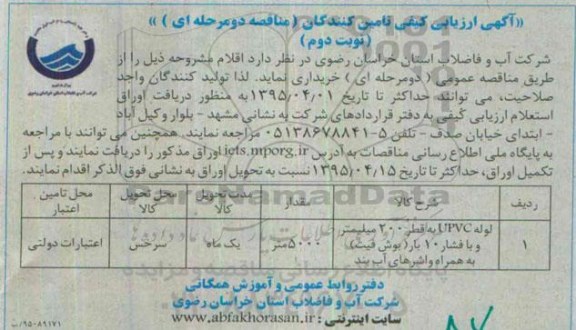 «آگهی ارزیابی کیفی تامین کنندگان (مناقصه دومرحله ای)»
(نوبت دوم)
شرکت آب و فاضلاب استان خراسان رضوی در نظر دارد اقلام مشروحه ذیل را از
طریق مناقصه عمومی (دومرحله ای) خریداری نماید. لذا تولید کنندگان واجد
صلاحیت، می توانند حداکثر تا تاریخ ۱۳۹۵/۰۴/۰۱ به منظور دریافت اوراق
استعلام ارزیابی کیفی به دفتر قراردادهای شرکت به نشانی مشهد - بلوار وکیل آباد
- ابتدای خیابان صدف - تلفن ۵-۰۵۱۳۸۶۷۸۸۴۱ مراجعه نمایند. همچنین می توانند با مراجعه
به پایگاه ملی اطلاع رسانی مناقصات به آدرس iets.mporg.ir اوراق مذکور را دریافت نمایند و پس از
تکمیل اوراق، حداکثر تا تاریخ ۱۳۹۵/۰۴/۱۵ نسبت به تحویل اوراق به نشانی فوق الذکر اقدام نمایند.
ردیف شرح کالا مقدار مدت تحویل کالا محل تحویل کالا محل تامین اعتبار
۱ لوله UPVC به قطر ۲۰۰ میلیمتر و با فشار ۱۰ بار (پوش فیت) به همراه واشرهای آب بند ۵۰۰۰ متر یک ماه سرخس اعتبارات دولتی
دفتر روابط عمومی و آموزش همگانی
شرکت آب و فاضلاب استان خراسان رضوی
سایت اینترنتی: www.abfakhorasan.ir
۹۵۰۸۹۱۷۱/ب
ParsNamadData
پایگاه اطلاع رسانی مناقصه و مزایده